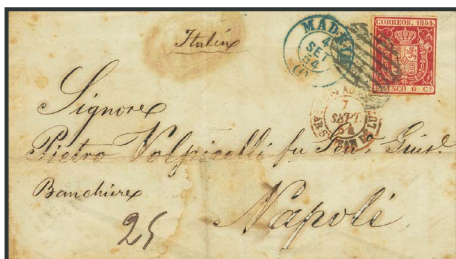 Italia
MADRID
4
SET
54
CORREOS. 1854.
FRANCO 6 Cs
7
SEPT.
54
Signore
Pietro Volpicelli fu
Banchiere
Napoli
25